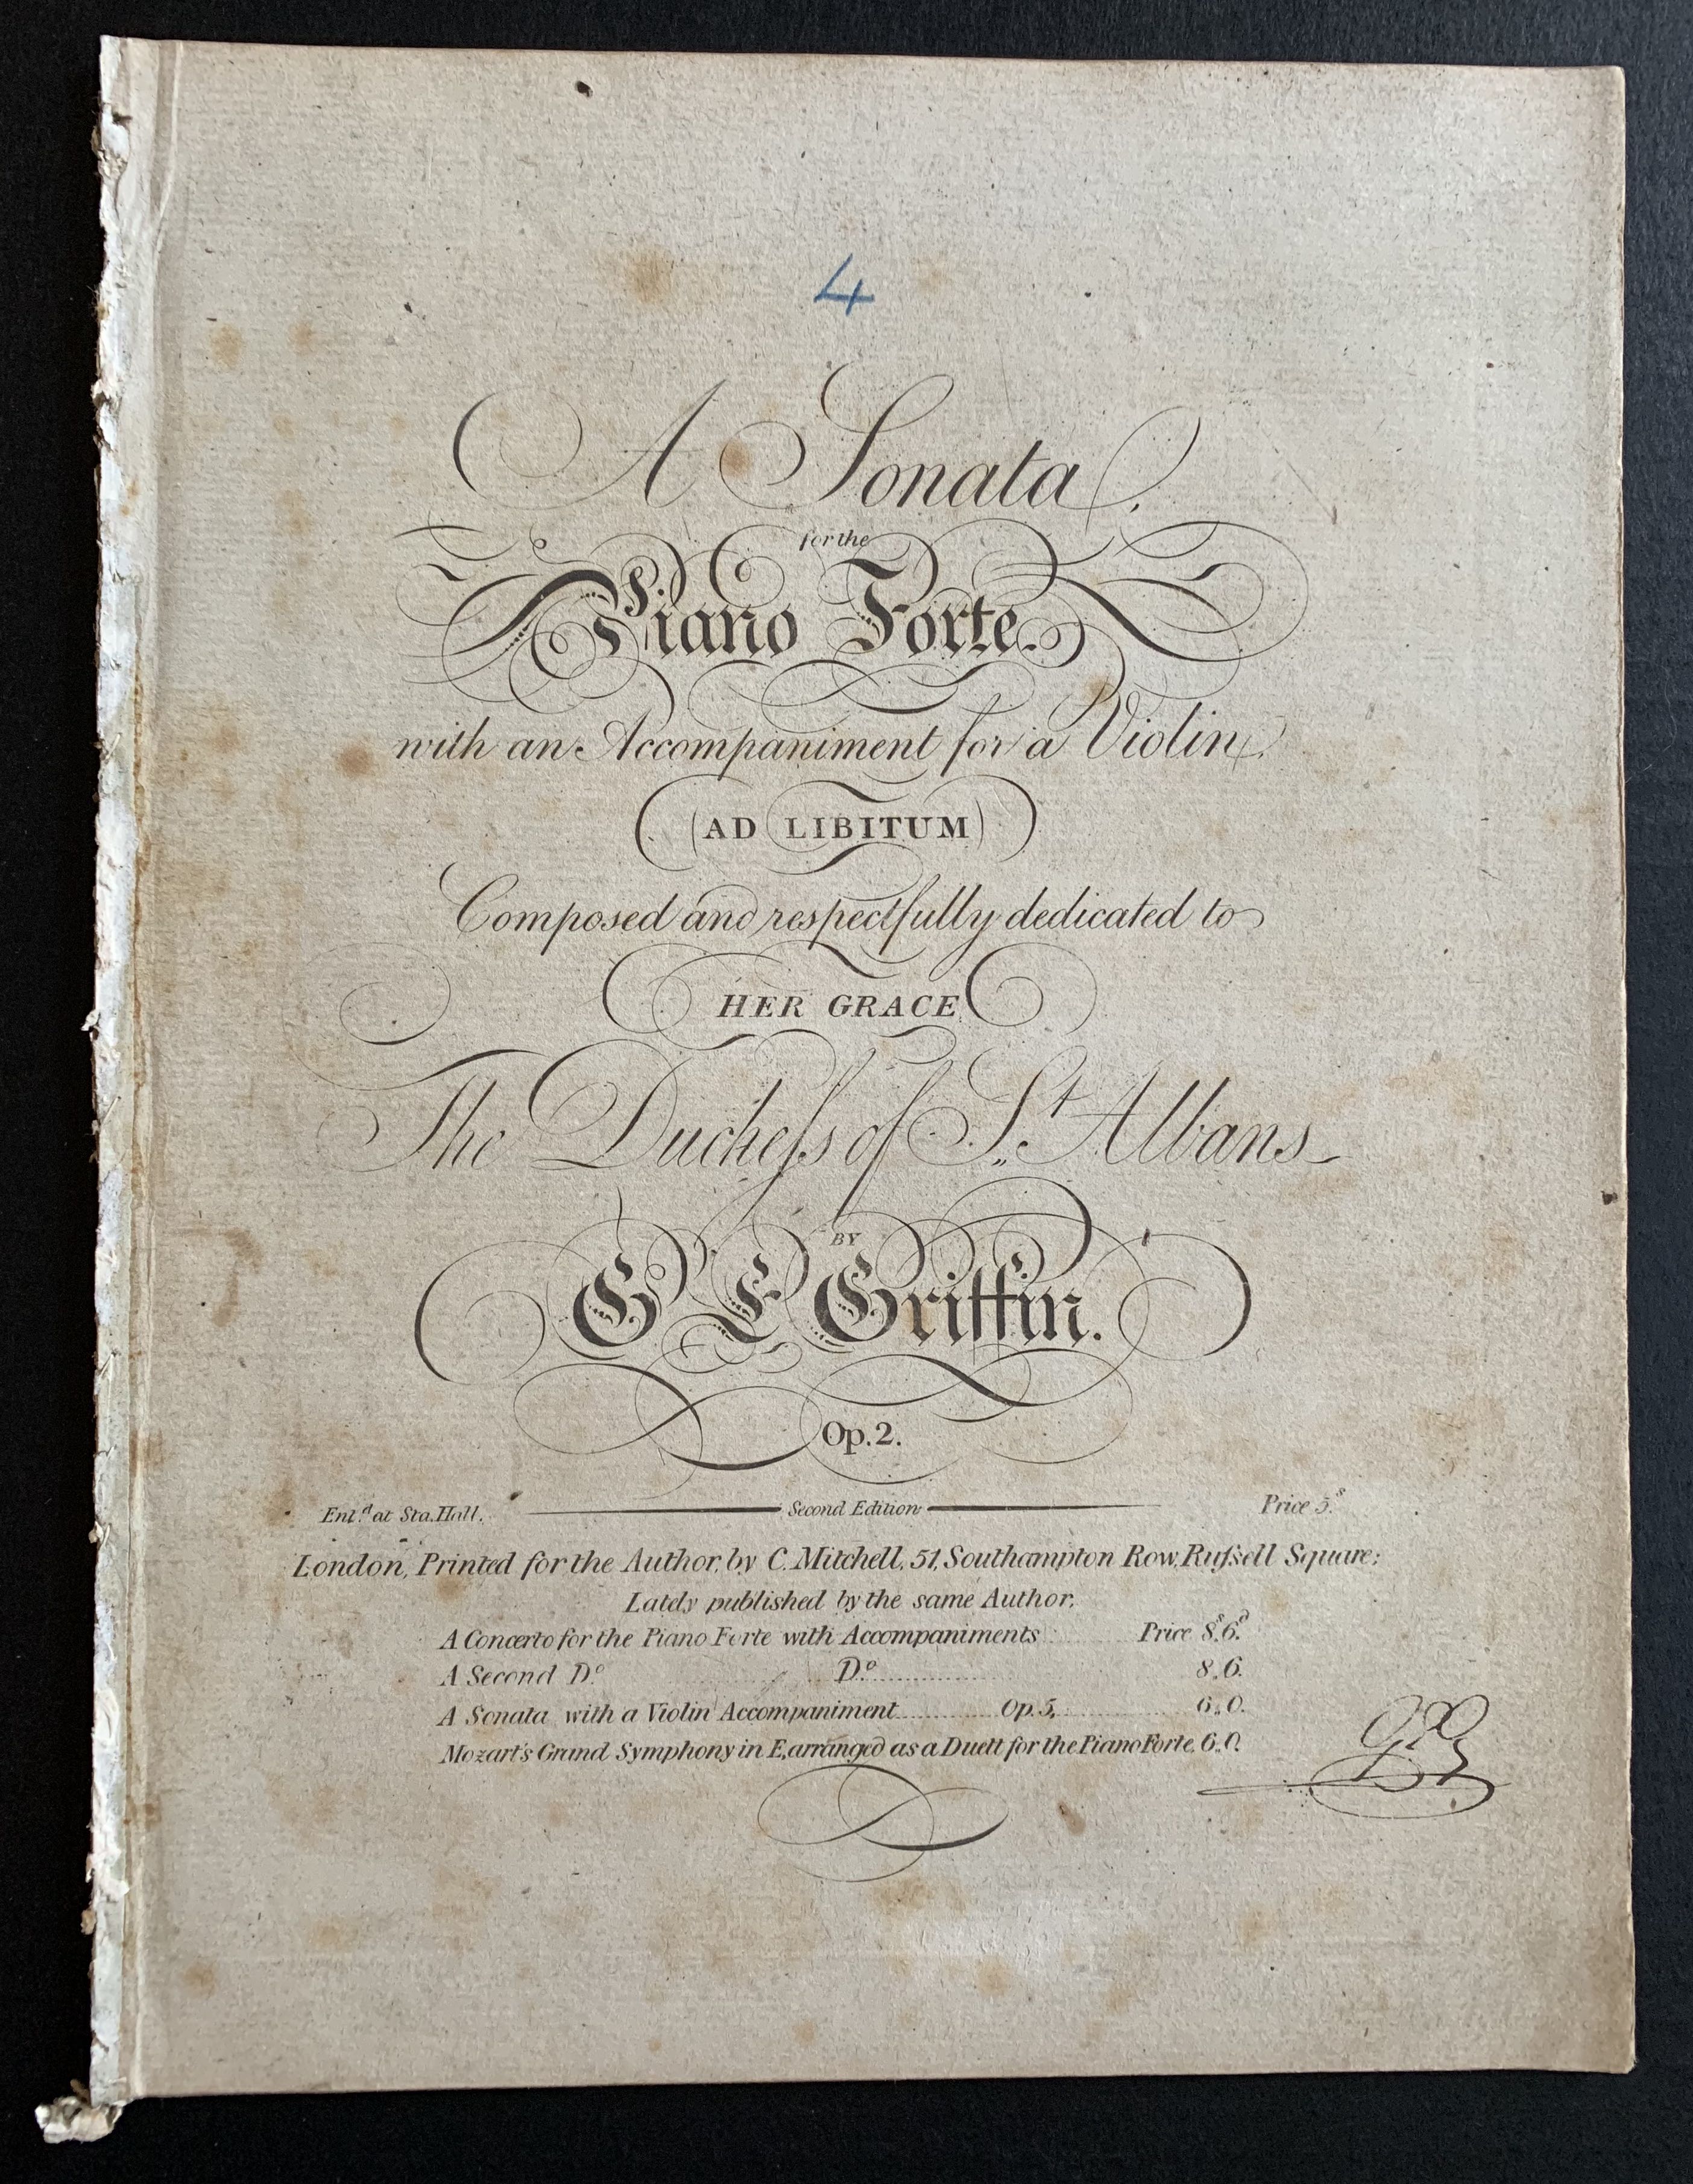 4
A Sonata,
for the
Piano Forte.
with an Accompaniment for a Violin,
(AD LIBITUM)
Composed and respectfully dedicated to
HER GRACE
The Ducheſs of St. Albans
BY
G E Griffin.
Op. 2.
Ent.d at Sta. Hall. Second Edition Price 5.s
London, Printed for the Author, by C. Mitchell, 51, Southampton Row, Ruſsell Square;
Lately published by the same Author.
A Concerto for the Piano Forte with Accompaniments Price 8.s6.d
A Second D.o D.o 8.,6.
A Sonata with a Violin Accompaniment Op. 5. 6.,0.
Mozart's Grand Symphony in E, arranged as a Duett for the Piano Forte, 6.,0.